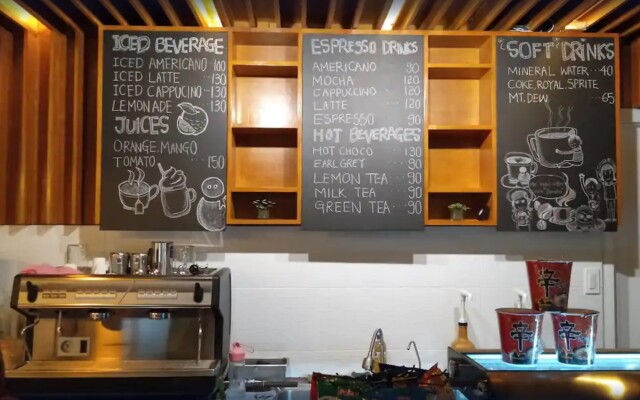 ICED BEVERAGE
ICED AMERICANO 100
ICED LATTE 130
ICED CAPPUCINO 130
LEMONADE 130
JUICES
ORANGE, MANGO
TOMATO 150
ESPRESSO DRINKS
AMERICANO 90
MOCHA 120
CAPPUCCINO 120
LATTE 120
ESPRESSO 90
HOT BEVERAGES
HOT CHOCO 130
EARL GREY 90
LEMON TEA 90
MILK TEA 90
GREEN TEA 90
SOFT DRINKS
MINERAL WATER 40
COKE, ROYAL, SPRITE
MT. DEW 65
辛
辛
辛